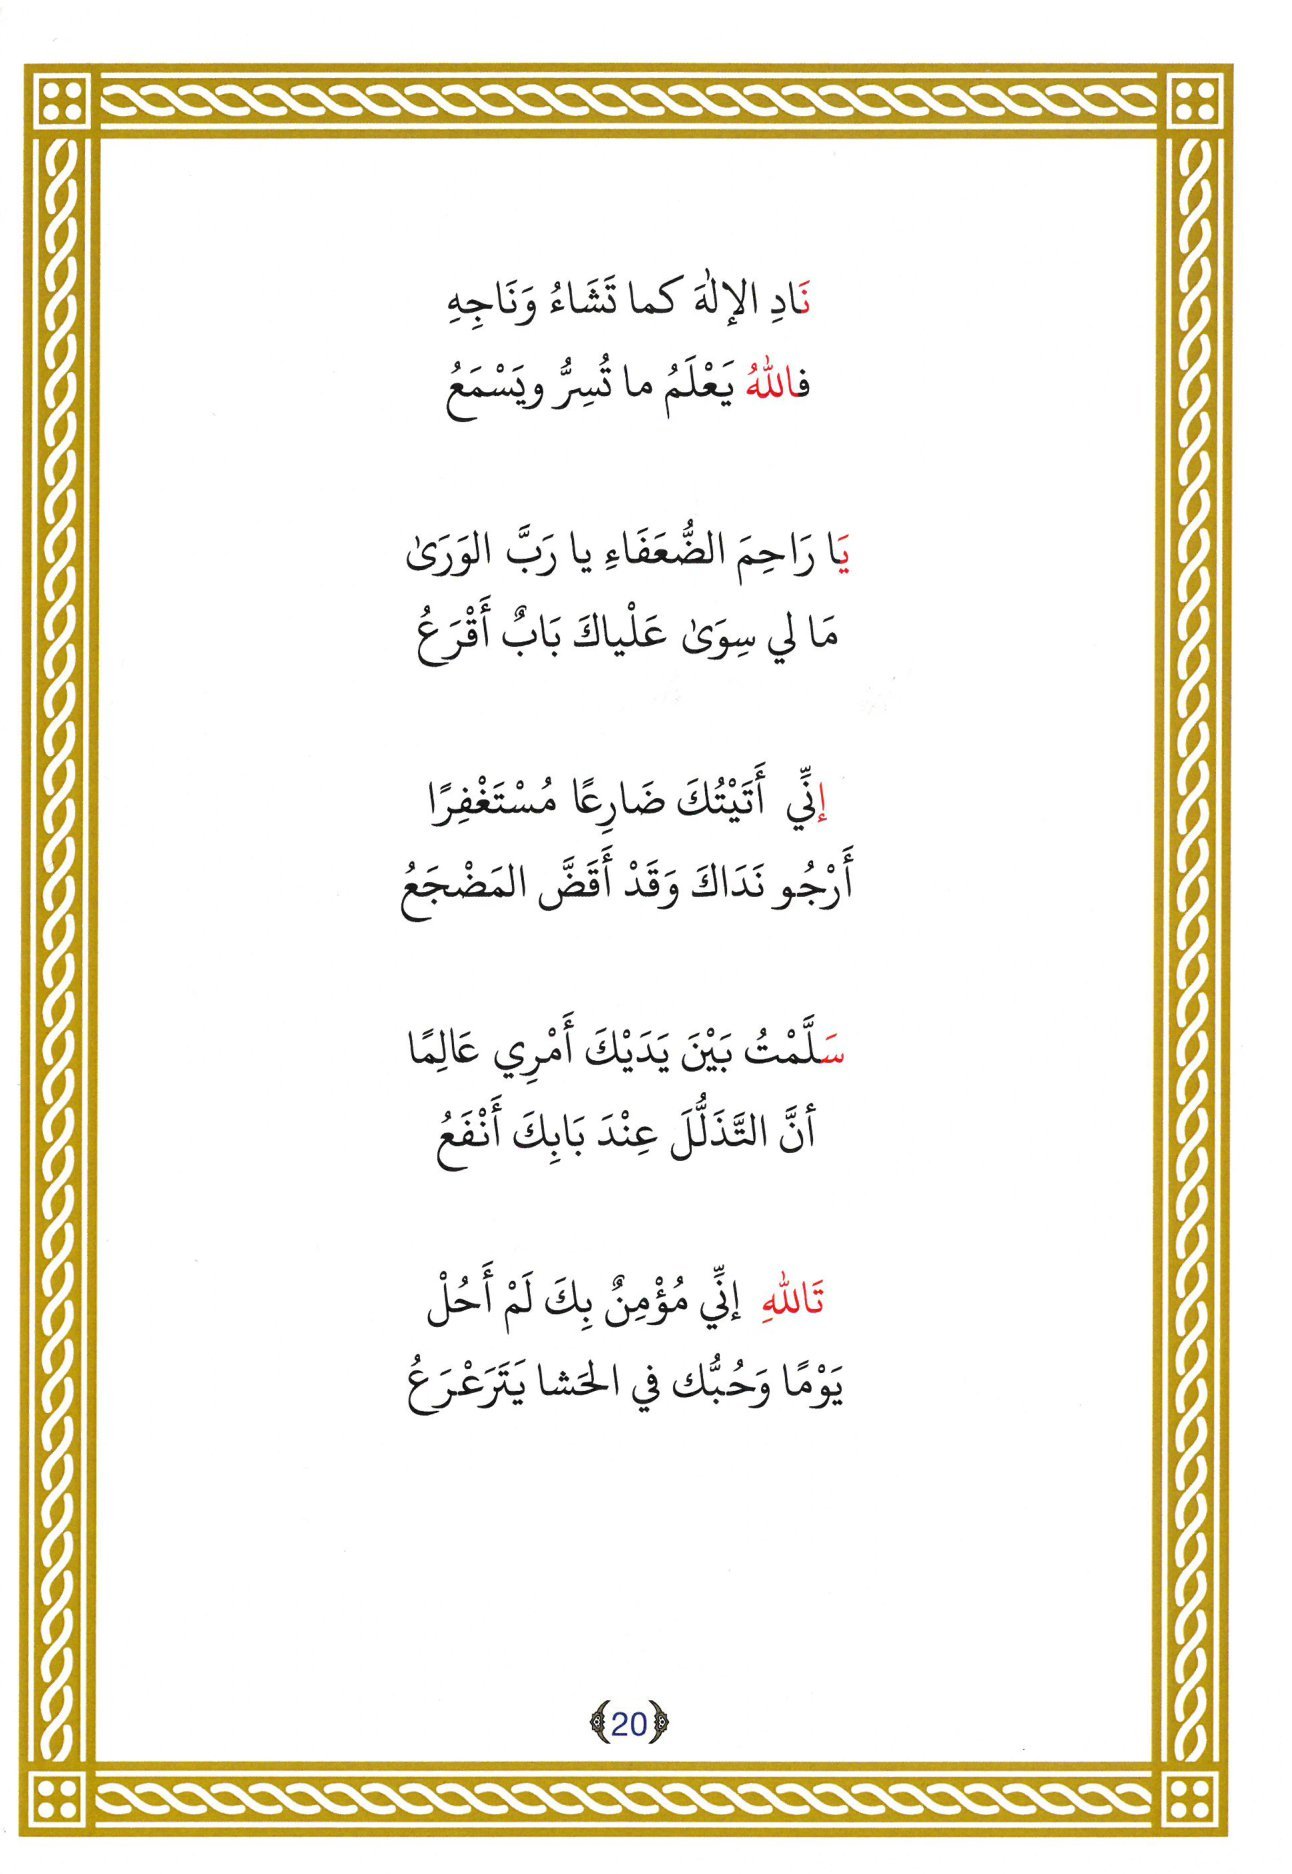 نَادِ الإلٰهَ كما تَشَاءُ وَنَاجِهِ
فاللهُ يَعْلَمُ ما تُسِرُّ ويَسْمَعُ
يَا رَاحِمَ الضُّعَفَاءِ يا رَبَّ الوَرَىٰ
مَا لي سِوَىٰ عَلْياكَ بَابٌ أَقْرَعُ
إنِّي أَتَيْتُكَ ضَارِعًا مُسْتَغْفِرًا
أَرْجُو نَدَاكَ وَقَدْ أَقَضَّ المَضْجَعُ
سَلَّمْتُ بَيْنَ يَدَيْكَ أَمْرِي عَالِمًا
أنَّ التَّذَلُّلَ عِنْدَ بَابِكَ أَنْفَعُ
تَاللهِ إنِّي مُؤْمِنٌ بِكَ لَمْ أَحُلْ
يَوْمًا وَحُبُّك في الحَشا يَتَرَعْرَعُ
20